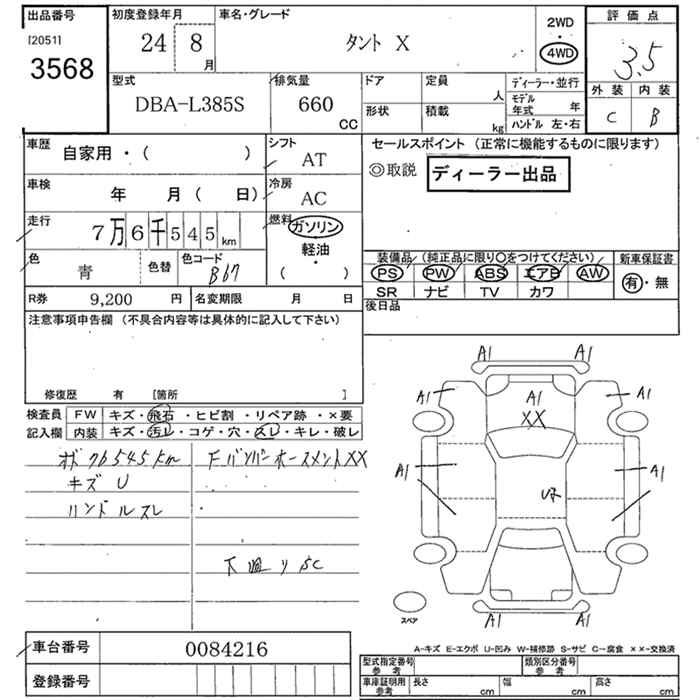 出品番号
[2051]
3568
初度登録年月
24 8 月
車名・グレード
タント X
2WD
4WD
評価点
3.5
外装 内装
C B
型式
DBA-L385S
排気量
660 CC
ドア
形状
定員 人
積載 kg
ディーラー・並行
モデル年式 年
ハンドル 左・右
車歴
自家用・( )
シフト
AT
車検
年 月( 日)
冷房
AC
走行
7万6千545km
燃料
ガソリン
軽油
( )
色
青
色替
色コード
B67
R券 9,200 円
名変期限 月 日
セールスポイント (正常に機能するものに限ります)
◎取説 ディーラー出品
装備品 (純正品に限り〇をつけてください)
PS PW ABS エアB AW
SR ナビ TV カワ
新車保証書
有・無
後日品
注意事項申告欄 (不具合内容等は具体的に記入して下さい)
修復歴 有 [箇所 ]
検査員記入欄
FW キズ・飛石・ヒビ割・リペア跡・×要
内装 キズ・汚レ・コゲ・穴・スレ・キレ・破レ
オド76545km
キズ U
ハンドルスレ
FバンパーホースメントXX
下廻りSC
A1 A1
A1 A1 A1
XX
A1 A1
Uア
A1 A1
スペア
A-キズ E-エクボ U-凹み W-補修跡 S-サビ C-腐食 ××-交換済
車台番号 0084216
登録番号
型式指定番号 参考
類別区分番号 参考
車庫証明用 参考
長さ cm 幅 cm 高さ cm